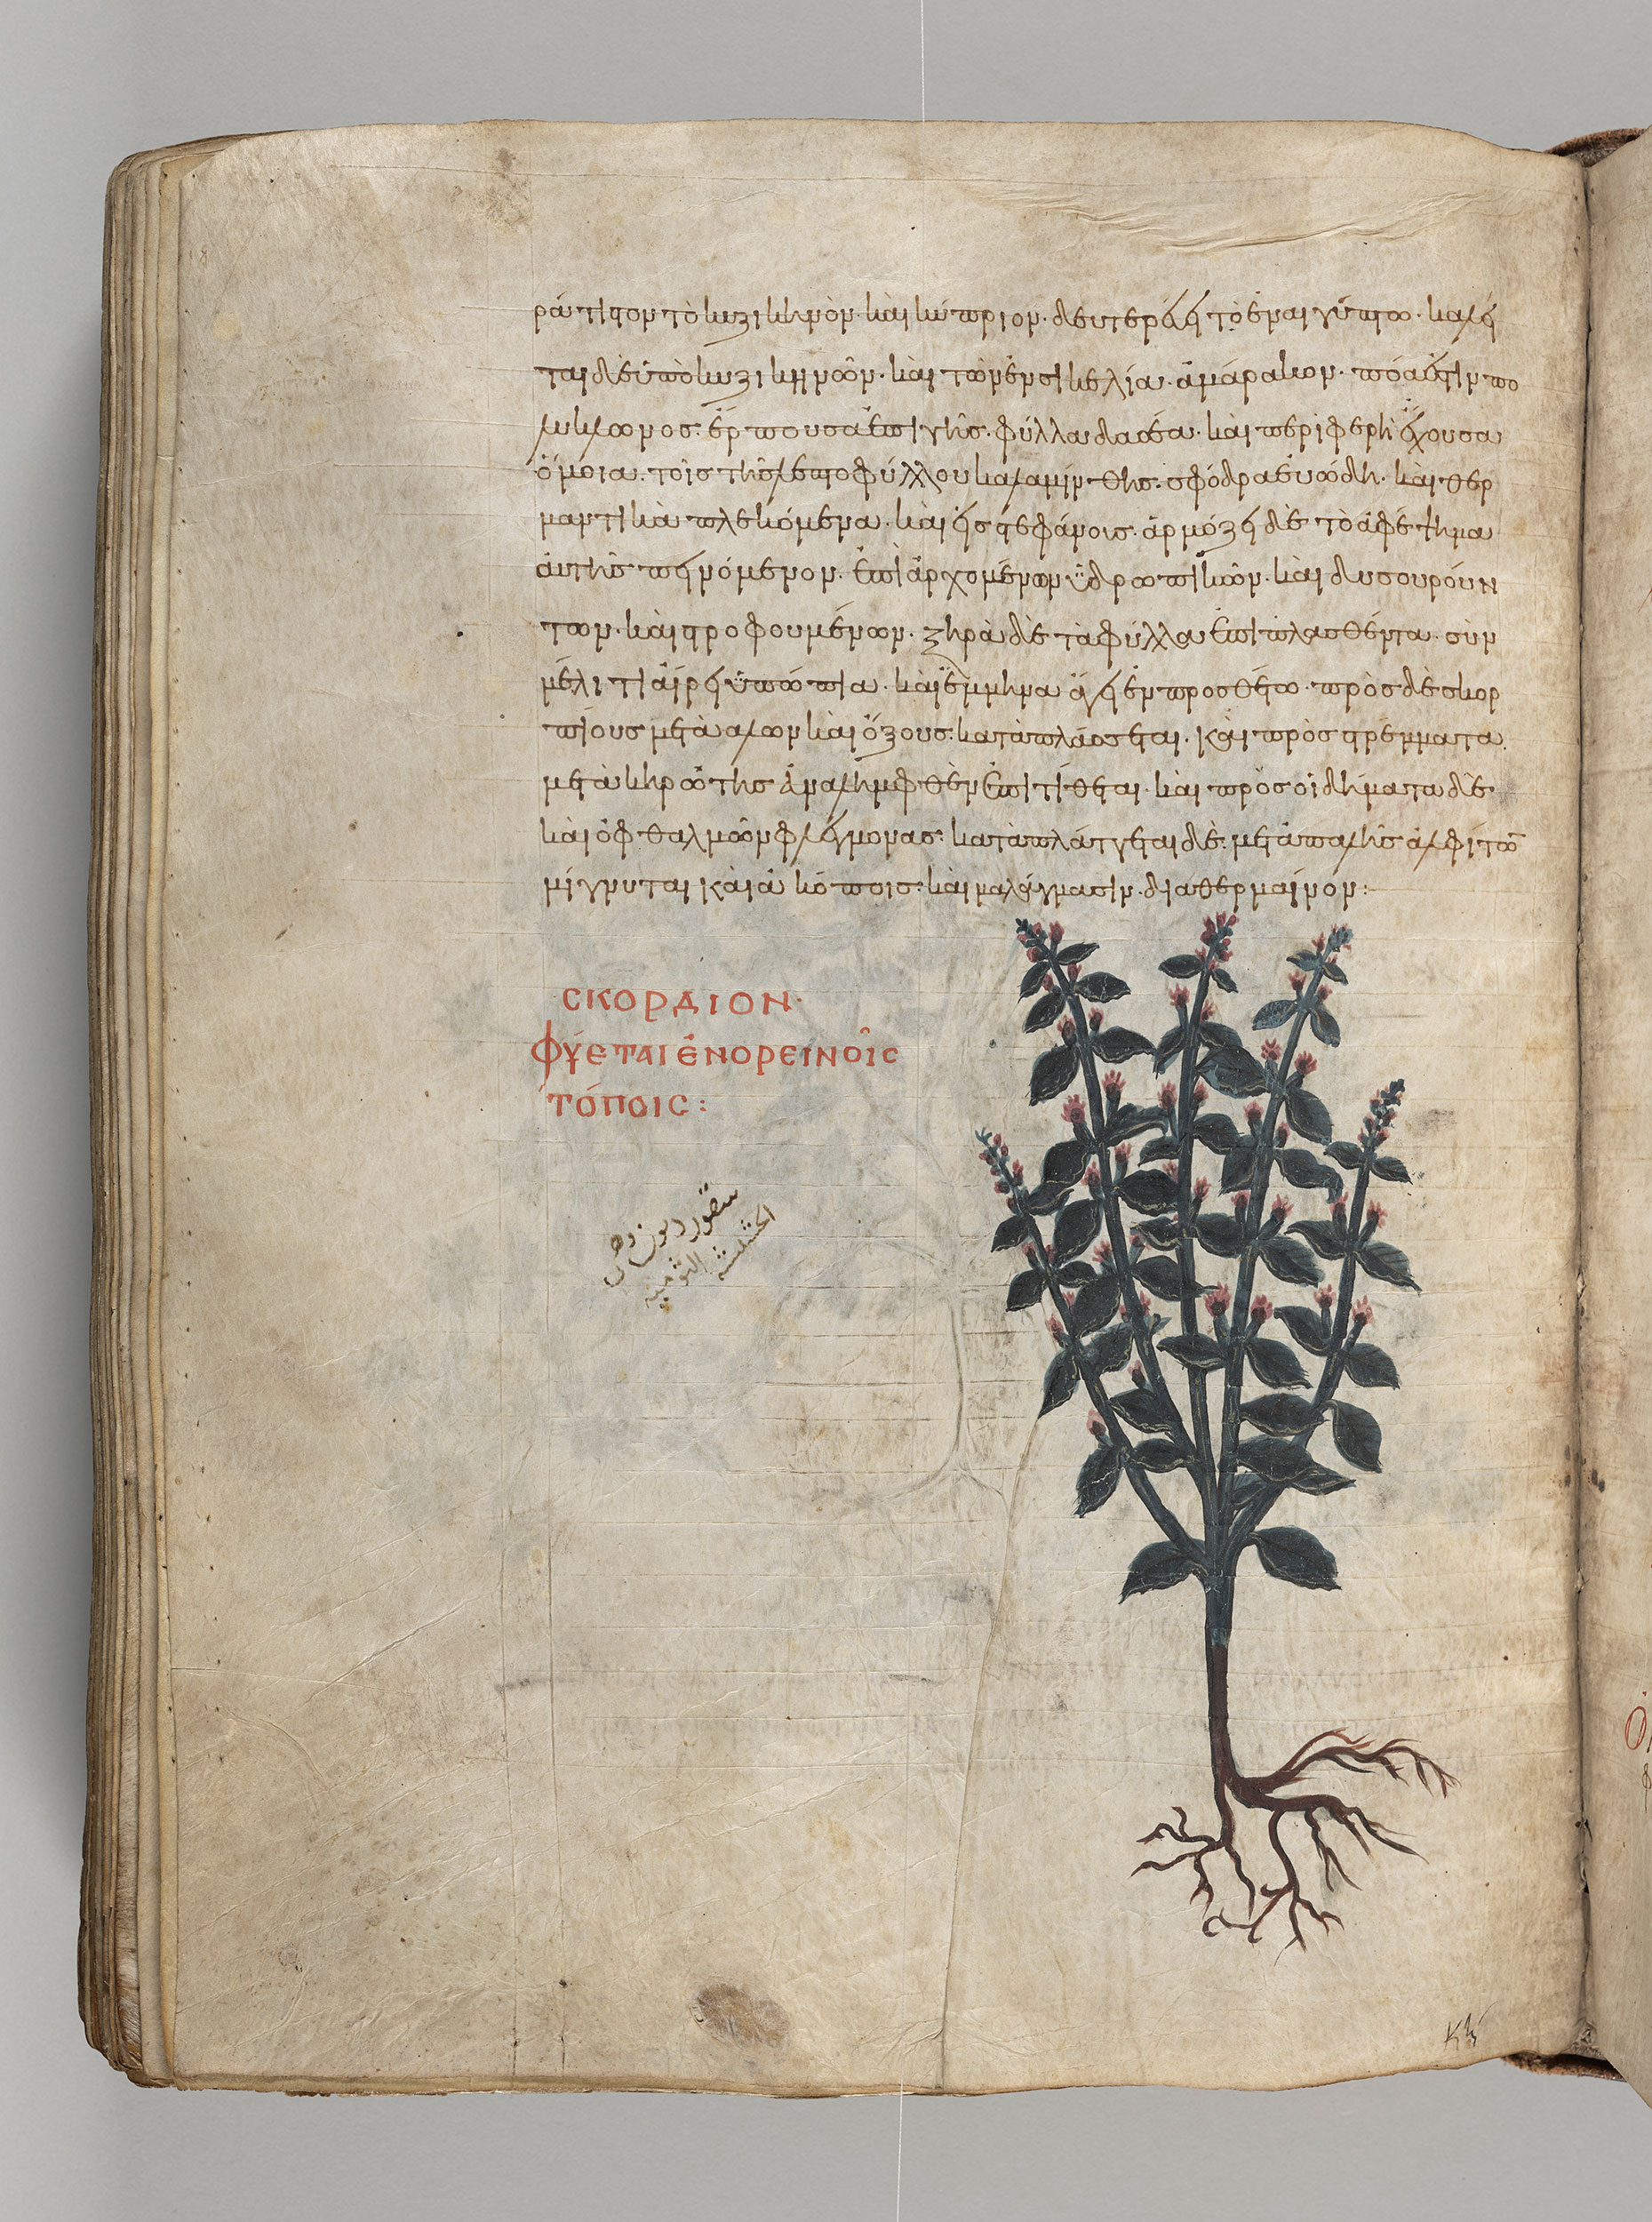 ράτιστον τὸ κυζικηνὸν· καὶ κύπριον· δευτερεύει τὸ ἐν αἰγύπτω· καλεῖ
ται δὲ ὑπὸ κυζικηνῶν· καὶ τῶν ἐν σικελία· ἀμάρακον· πόα ἐστὶν πο
λυκλωνος· ἕρπουσα ἐπὶ γῆς· φύλλα δασέα· καὶ περιφερῆ ἔχουσα
ὅμοια· τοῖς τῆς λεπτοφύλλου καλαμίνθης· σφόδρα εὐώδη· καὶ θερ
μαντικὰ πλεκόμενα· καὶ εἰς στεφάνοις· ἁρμόζει δὲ τὸ ἀφέψημα
αὐτῆς πεινόμενον· ἐπὶ ἀρχομένων ὑδρωπικῶν· καὶ δυσουρούν
των· καὶ στροφουμένων· ξηρὰ δὲ τὰ φύλλα ἐπιπλασθέντα· σὺν
μέλιτι αἴρει ὑπώπια· καὶ ἔμμηνα ἄγει ἐν προσθέτω· πρὸς δὲ σκορ
πίους μετὰ αλων καὶ ὄξους· καταπλάσσεται· καὶ πρὸς στρέμματα
μετὰ κηρωτης ἀναλημφθὲν ἐπιτίθεται· καὶ πρὸς οἰδήματα δὲ
καὶ ὀφθαλμῶν φλέγμονας· καταπλάττεται δὲ· μετὰ παλῆς ἀλφίτων
μίγνυται καὶ ἀκόποις· καὶ μαλάγμασιν· διαθερμαίνον:
CΚΟΡΔΙΟΝ·
ΦΎΕΤΑΙ ἘΝ ΟΡΕΙΝΟΙ͂C
ΤΌΠΟΙC:
سقورديون وهى
الحشيشة الثومية